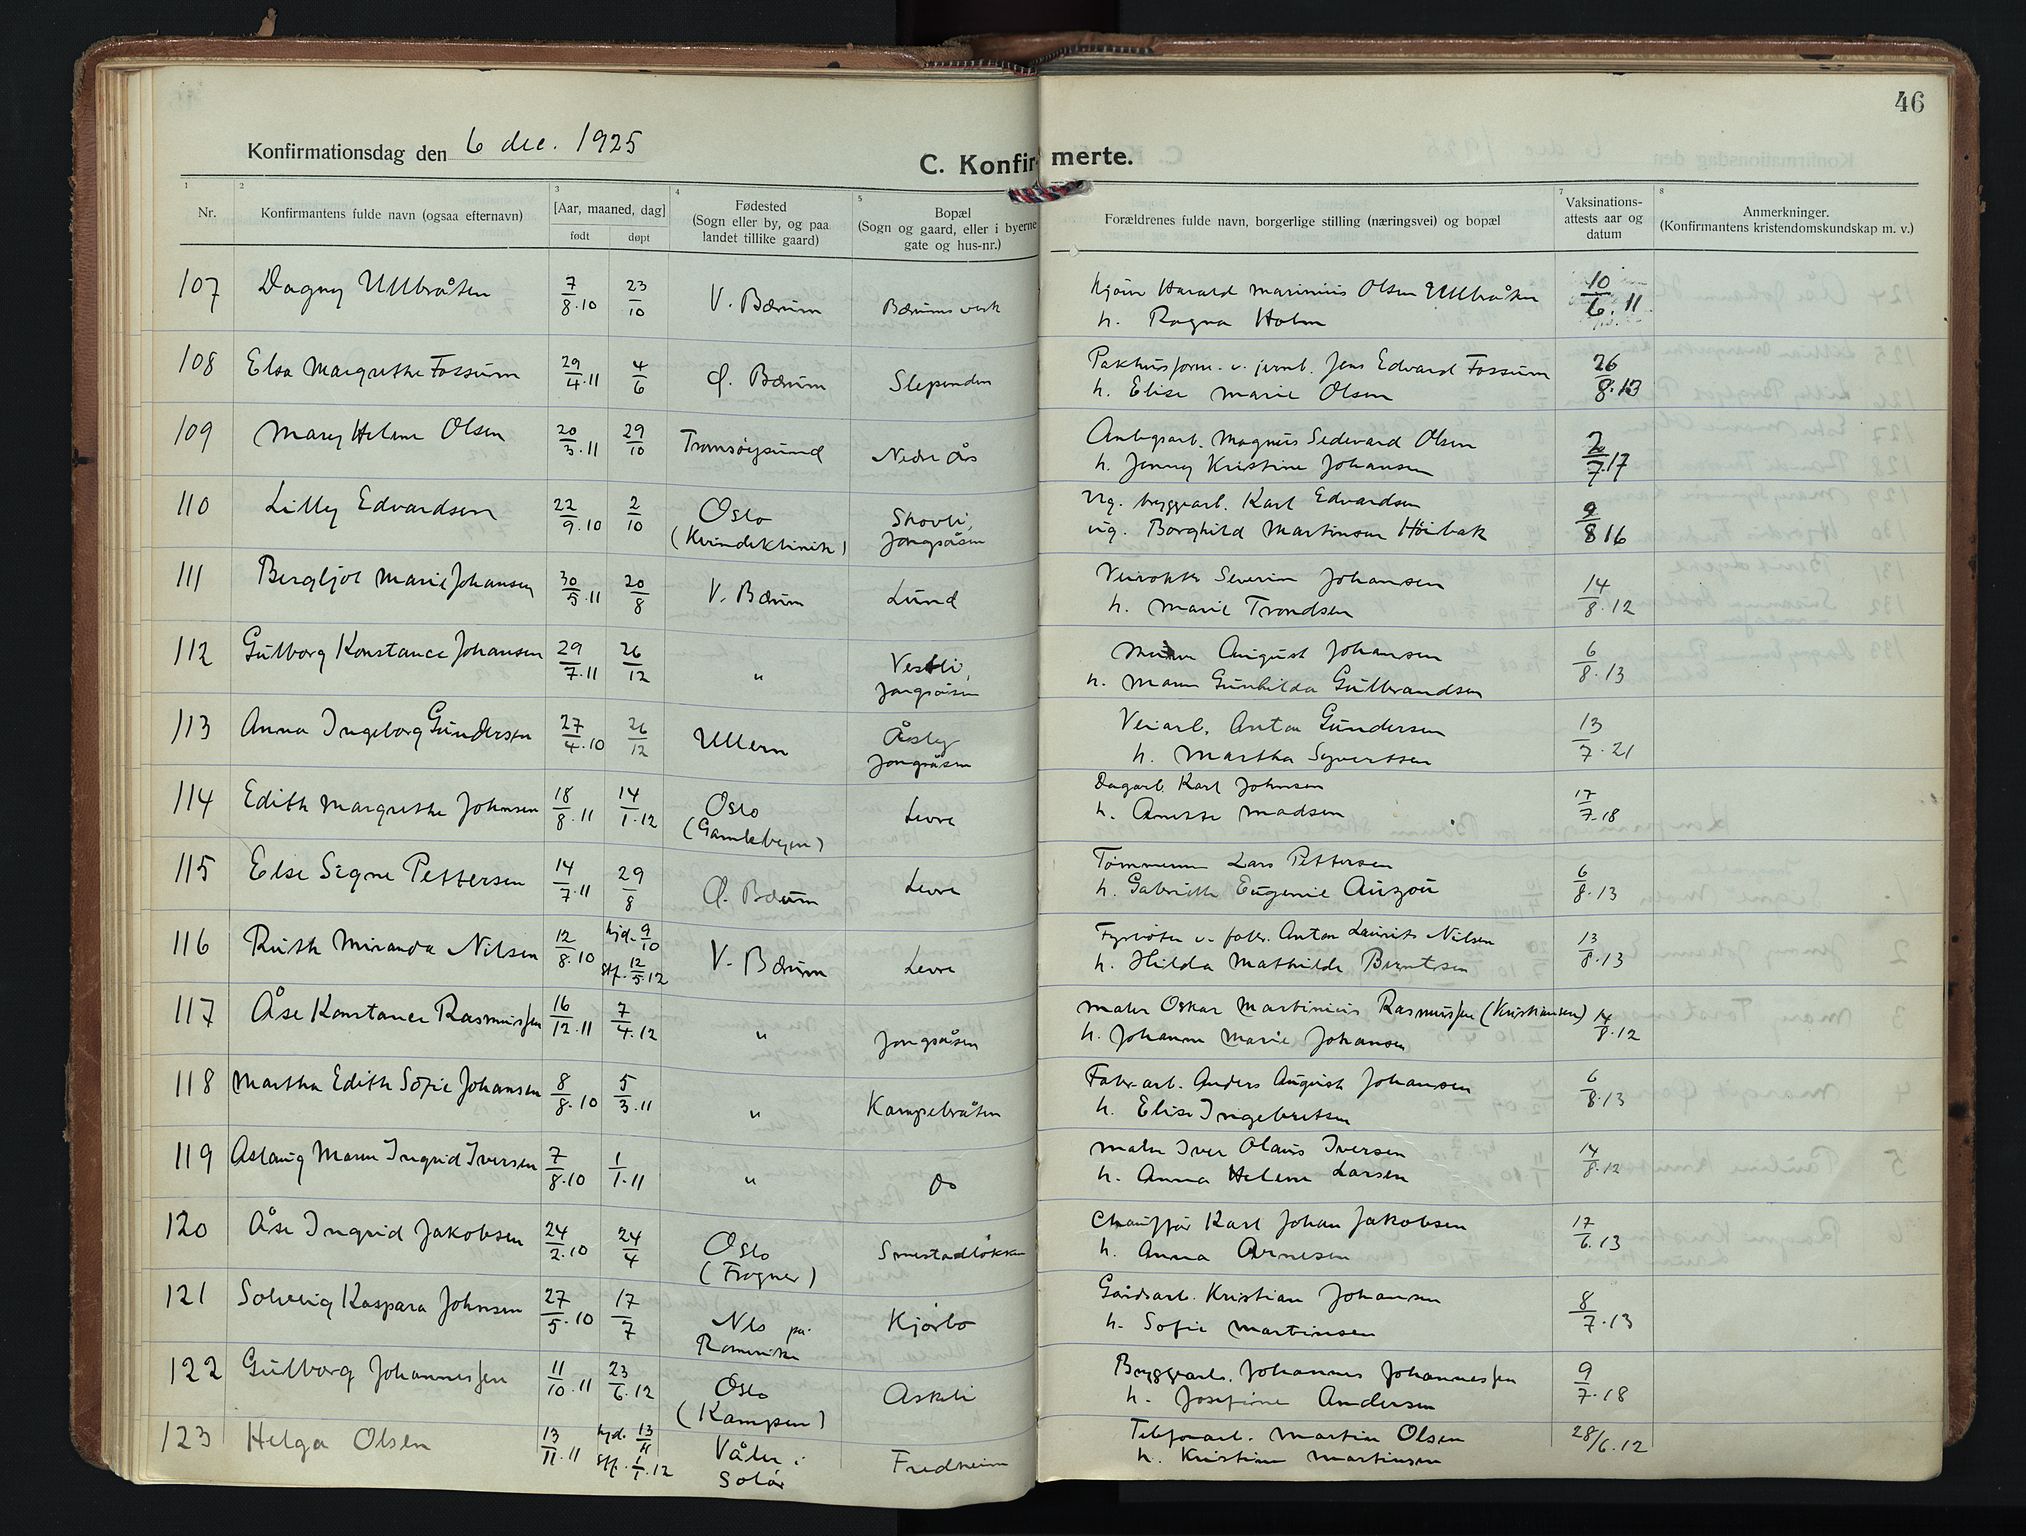 46
Konfirmationsdag den 6 dec. 1925
C. Konfirmerte.
1 2 3 4 5 7 8
Nr. Konfirmantens fulde navn (ogsaa efternavn) [Aar, maaned, dag] født døpt Fødested (Sogn eller by, og paa landet tillike gaard) Bopæl (Sogn og gaard, eller i byerne gate og hus-nr.) Forældrenes fulde navn, borgerlige stilling (næringsvei) og bopæl Vaksinations-attests aar og datum Anmerkninger. (Konfirmantens kristendomskundskap m. v.)
107 Dagny Ullbråten 7/8.10 23/10 V. Bærum Bærums verk Kjører Harald Marinius Olsen Ullbråten 10/6.11
h. Ragna Holm
108 Elsa Margrethe Fossum 29/4.11 4/6 Ø. Bærum Slependen Pakhusform. v. jernb. Jens Edvard Fossum 26/8.13
h. Elise Marie Olsen
109 Mary Helene Olsen 20/3.11 29/10 Tromsøysund Nedre Ås Anlegsarb. Magnus Sedevard Olsen 2/7.17
h. Jenny Kristine Johansen
110 Lilly Edvardsen 22/9.10 2/10 Oslo Skovli, Ug. bryggearb. Karl Edvardsen 9/8 16
(Kvindeklinik) Jongsåsen ug. Borghild Martinsen Høibak
111 Bergljot Marie Johansen 30/5.11 20/8 V. Bærum Lund Veivokter Severin Johansen 14/8.12
h. Marie Trondsen
112 Gulborg Konstance Johansen 29/7.11 26/12 " Vestli, August Johansen 6/8.13
Jongsåsen h. Maren Gunhilda Gulbrandsen
113 Anna Ingeborg Gundersen 27/4.10 26/12 Ullern Åsly Veiarb. Anton Gundersen 13/7.21
Jongsåsen h. Martha Syvertsen
114 Edith Margrethe Johnsen 18/8.11 14/1.12 Oslo Levre Dagarb. Karl Johnsen 17/7.18
(Gamlebyen) h. Anette Madsen
115 Else Signe Pettersen 14/7.11 29/8 Ø. Bærum Levre Tømmerm. Lars Pettersen 6/8.13
h. Gabrielle Eugenie Auzou
116 Ruth Miranda Nilsen 12/8.10 hjd. 9/10 stf. 12/5.12 V. Bærum Levre Fyrbøter v. fabr. Anton Laurits Nilsen 13/8.13
h. Hilda Mathilde Berntsen
117 Åse Konstance Rasmussen 16/12.11 7/4.12 " Jongsåsen Maler Oskar Martinius Rasmussen (Kristiansen) 14/8.12
h. Johanne Marie Johansen
118 Martha Edith Sofie Johansen 8/8.10 5/3.11 " Kampebråten Fabr-arb. Anders August Johansen 6/8.13
h. Elise Ingebretsen
119 Aslaug Maren Ingrid Iversen 7/8.10 1/1.11 " do Maler Iver Olaus Iversen 14/8.12
h. Anna Helene Larsen
120 Åse Ingrid Jakobsen 24/2.10 24/4 Oslo Smestadløkken Chauffør Karl Johan Jakobsen 17/6.13
(Frogner) h. Anna Arnesen
121 Solveig Kaspara Johnsen 27/5.10 17/7 Nes på Kjørbo Gårdsarb. Kristian Johansen 8/7.13
Romerike h. Sofie Martinsen
122 Gulborg Johannessen 11/10.11 23/6.12 Oslo Askeli Bryggearb. Johannes Johannessen 9/7.18
(Kampen) h. Josefine Andersen
123 Helga Olsen 13/11.11 hjd. 13/11 stf. 1/1.12 Våler i Fredheim Telefonarb. Martin Olsen 28/6.12
Solør h. Kristine Martinsen